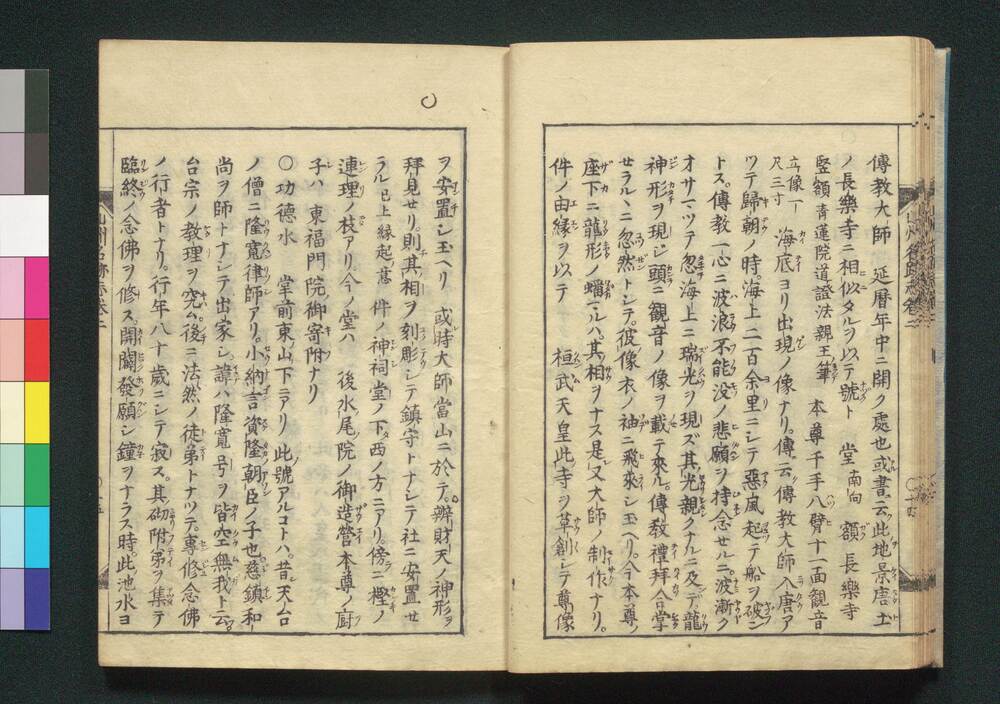 傳教大師 延暦年中ニ開ク處也或書云此地景唐土
ノ長樂寺ニ相似タルヲ以テ號ト 堂南向 額長樂寺
竪額青蓮院道證法親王筆 本尊千手八臂十一面觀音
立像一尺三寸 海底ヨリ出現ノ像ナリ。傳云傳教大師入唐ア
ツテ歸朝ノ時。海上二百余里ニシテ惡風起テ船ヲ破ン
トス。傳教一心ニ波浪不能没ノ悲願ヲ持念セルニ。波漸ク
オサマツテ忽海上ニ瑞光ヲ現ズ其光親クナルニ及デ。龍
神形ヲ現シ頭ニ觀音ノ像ヲ載テ來ル。傳教禮拜合掌
セラルヽニ忽然トシテ。彼像衣ノ袖ニ飛來シ玉ヘリ。今本尊ノ
座下ニ龍形ノ蟠マルハ。其相ヲナス是又大師ノ制作ナリ。
件ノ由縁ヲ以テ 桓武天皇此寺ヲ草創シテ尊像
ヲ安置シ玉ヘリ 或時大師當山ニ於テ。辨財天ノ神形ヲ
拜見セリ。則其相ヲ刻彫シテ鎮守トナシテ社ニ安置セ
ラル已上縁起ノ意 件ノ神祠堂ノ下西ノ方ニアリ。傍ニ樫ノ
連理ノ枝アリ今ノ堂ハ 後水尾院ノ御造營本尊ノ廚
子ハ 東福門院御寄附ナリ
○功德水 堂前東山下ニアリ 此號アルコトハ。昔天台
ノ僧ニ隆寛律師アリ。小納言資隆朝臣ノ子也慈鎮和
尚ヲ師トナシテ出家シ。諱ハ隆寛号ヲ皆空無我ト云。
台宗ノ教理ヲ究ム。後ニ法然ノ徒弟トナツテ。專修念佛
ノ行者トナリ。行年八十歳ニシテ寂ス。其砌附弟ヲ集テ
臨終ノ念佛ヲ修ス。開闢發願シ鐘ヲナラス時。此池水ヨ
山州名跡志巻二